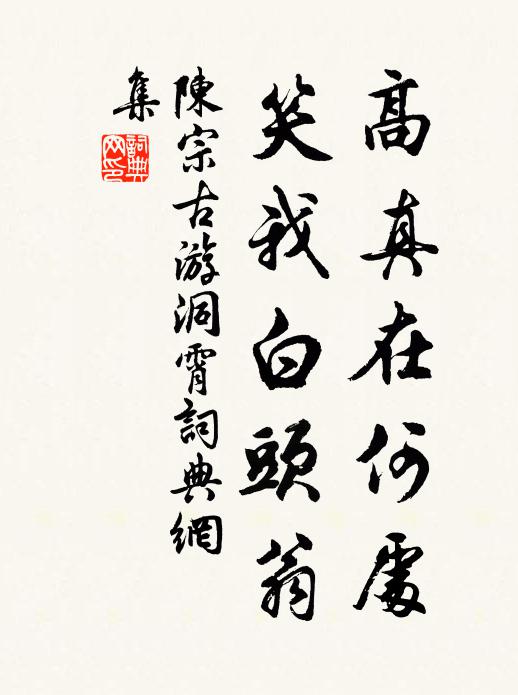 高真在何處
笑我白頭翁
陳宗古游洞霄詞典網
集
詞典網印